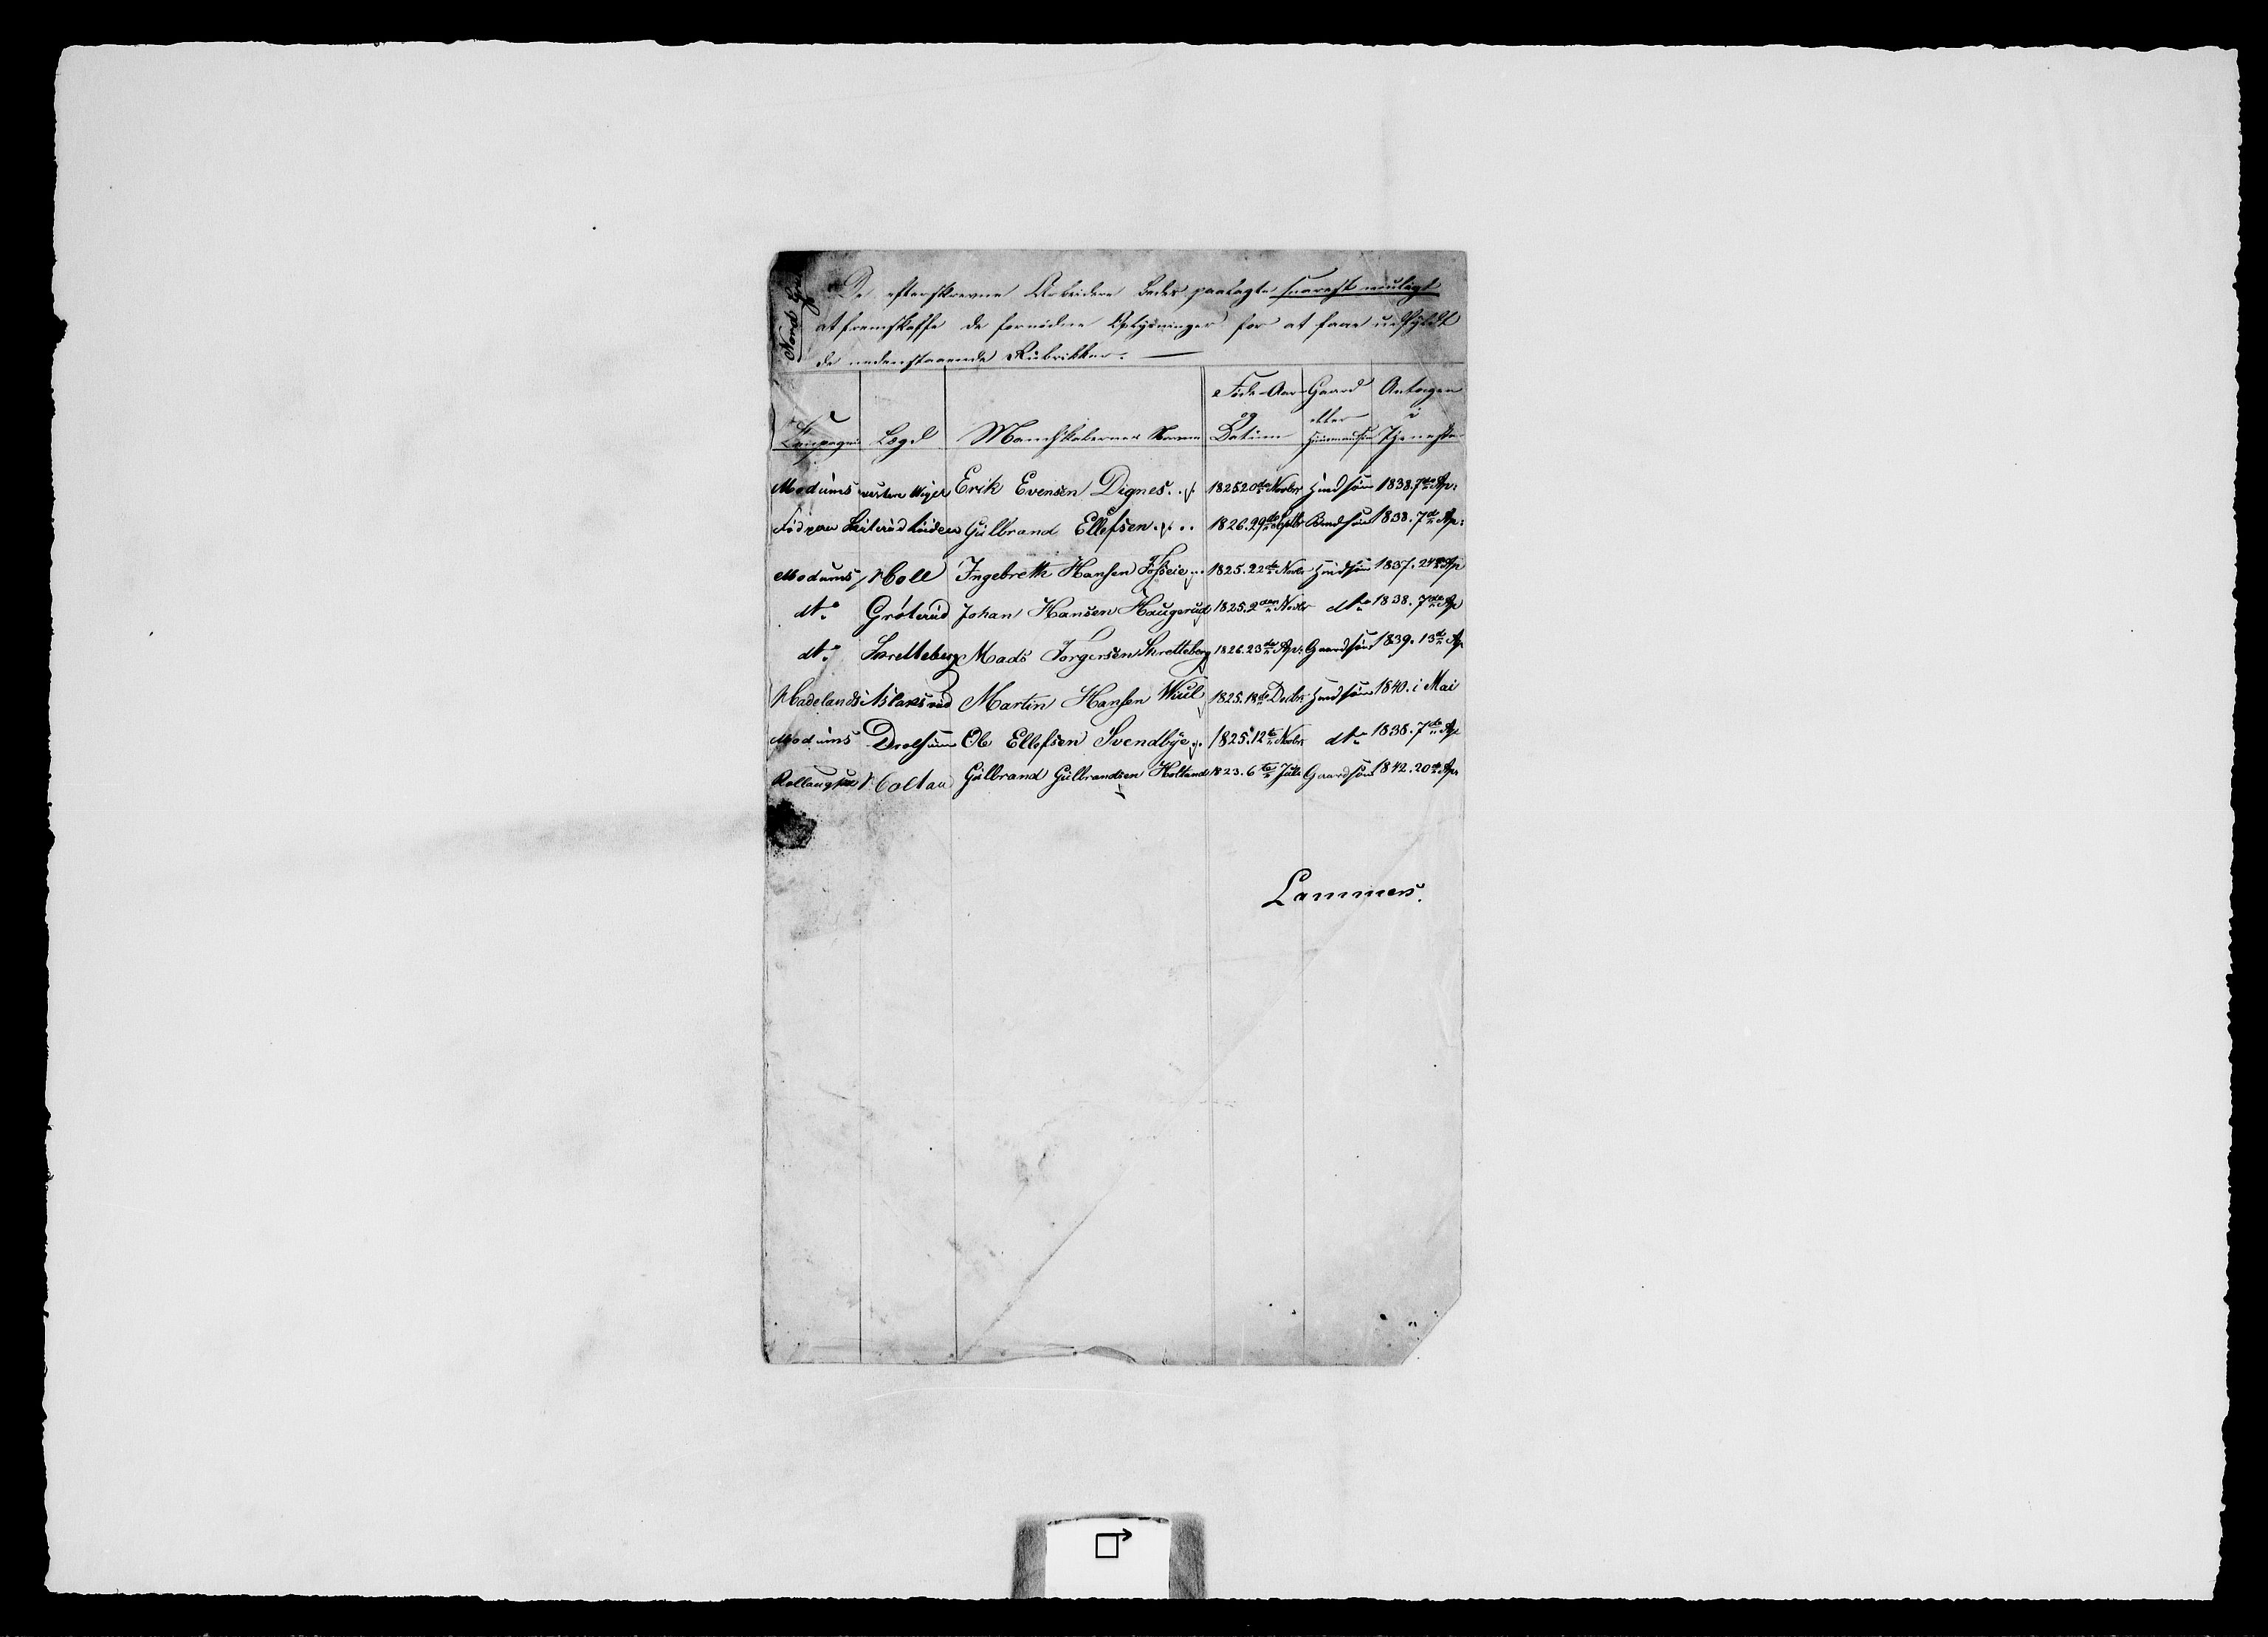 Nord
De efterskrevne Arbeidere bedes paalagte snarest muligt
at fremskaffe de fornødne Oplysninger for at faae udfyldt
de nedenstaaende Rubrikker. —
Compagni Lægd Mandskabernes Navne Føde-Aar og Datum Gaard eller Huusmandssøn Antagen i Tjeneste
Modums vestere Wiger Erik Evensen Dignes 1825 20de Novbr Huusmdsøn 1838. 7de Ap:
Gülbrand Ellefsen 1826. 29de Septbr 1838. 7de Ap:
Modums Holl Ingebreth Hansen Fosseie 1825. 22de Novbr 1837. 24de Ap
dto Gröterüd Johan Hansen Haugerüd 1825. 2den Novbr dto 1838. 7de Ap
dto Skretteberg Mads Torgersen Skretteberg 1826. 23de Ap: Gaardsøn 1839. 13de Ap
Hadelands Aslaksrüd Martin Hansen Wiül 1825. 18de Decbr 1840. i Mai
Modums Drolsum Ole Ellefsen Svendbye 1825. 12te Novbr dto 1838. 7de Ap
Rollaugs Holtan Gülbrand Gülbrandsen Holtand 1823. 6te Juli Gaardsøn 1842. 20de Ap:
Lammers.